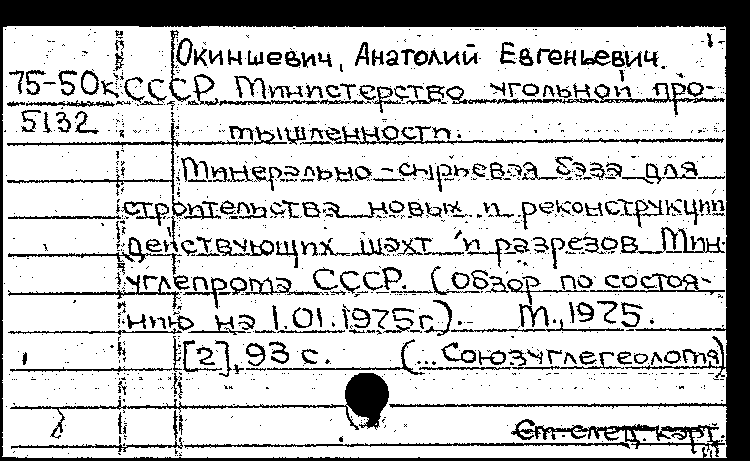 Окиншевич, Анатолий Евгеньевич.
75-50к СССР. Министерство угольной про-
5132 мышленности.
Минерально-сырьевая база для
строительства новых и реконструкции
действующих шахт и разрезов Мин-
углепрома СССР. (Обзор по состоя-
нию на 1.01.1975г). М., 1975.
[2], 93 с. (...Союзуглегеология)
См. след. карт.